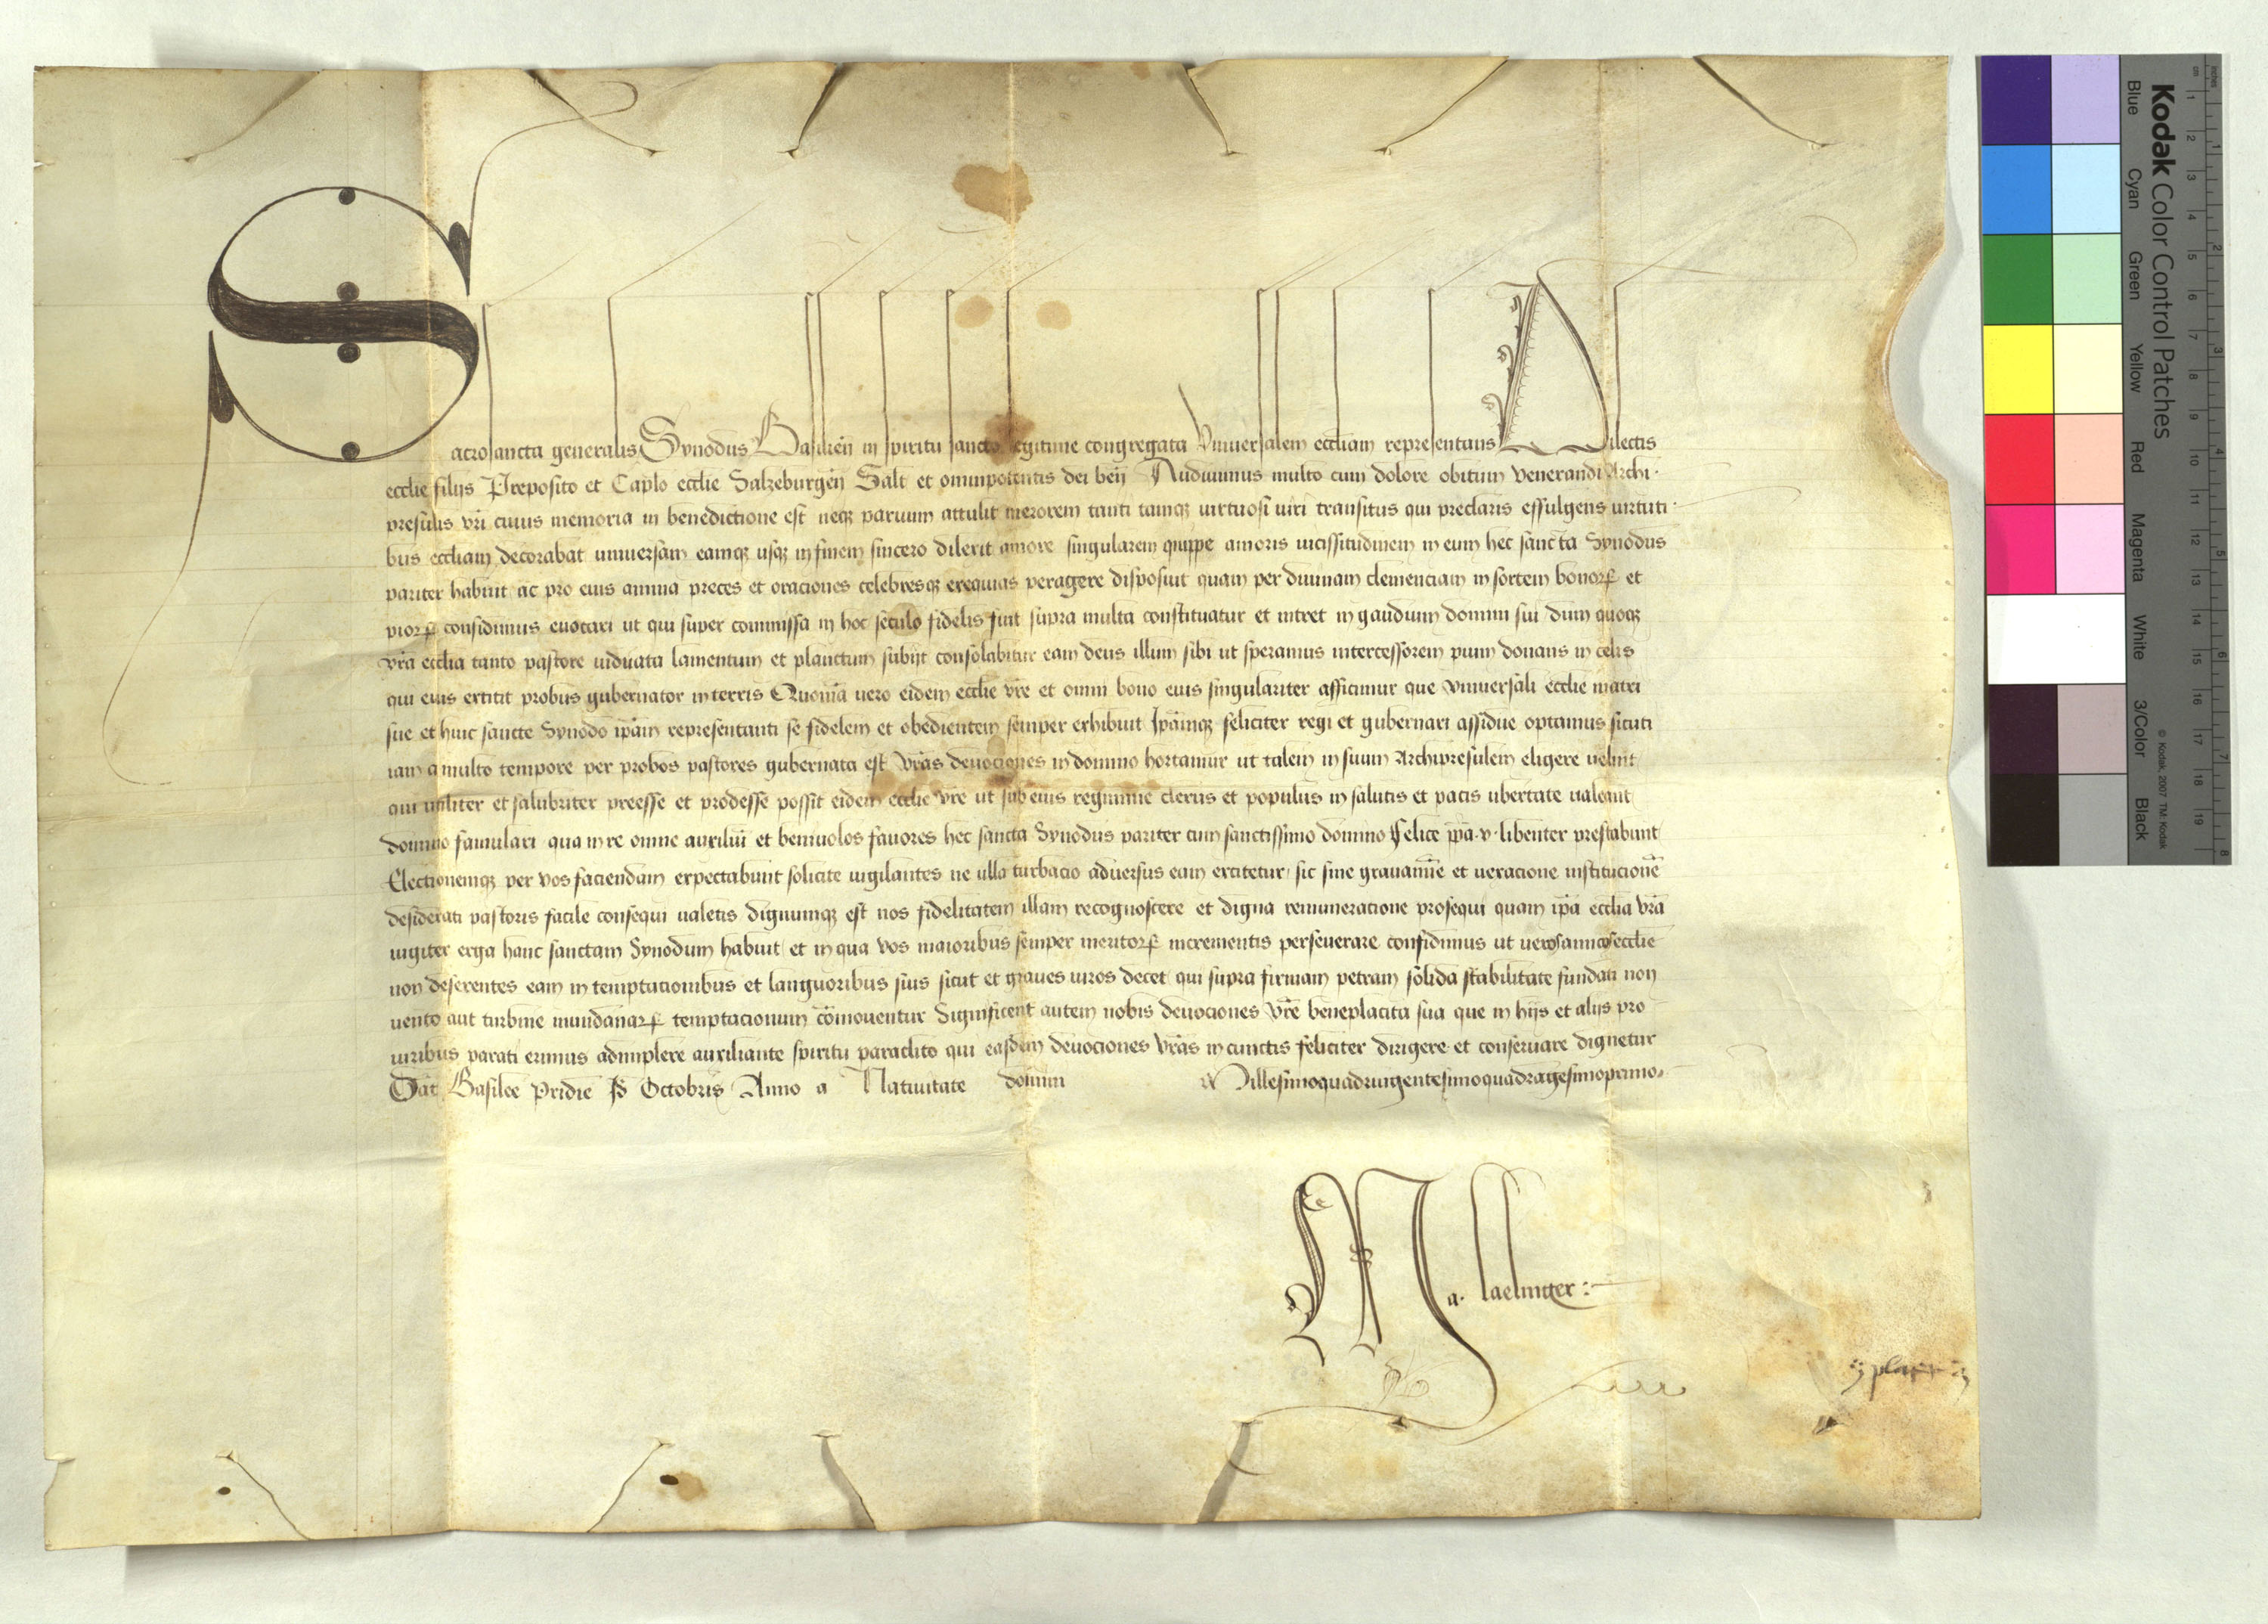 Sacrosancta generalis Synodus Basilien̄ in spiritu sancto legitime congregata Vniuersalem eccl̄iam representans Dilectis
eccl̄ie filijs Preposito et Cap̄lo eccl̄ie Salzeburgen̄ Salt̄ et omnipotentis dei ben̄ Audiuimus multo cum dolore obitum venerandi Archi-
presulis vr̄i cuius memoria in benedictione est neqꝫ paruum attulit merorem tanti tamqꝫ virtuosi uiri transitus qui preclaris effulgens uirtuti-
bus eccl̄iam decorabat uniuersam eamqꝫ usqꝫ in finem sincero dilexit amore singularem quippe amoris uicissitudinem in eum hec sancta Synodus
pariter habuit ac pro eius anima preces et oraciones celebresqꝫ exequias peragere disposuit quam per diuinam clemenciam in sortem bonorꝝ et
piorꝝ confidimus euocari ut qui super commissa in hoc seculo fidelis fuit supra multa constituatur et intret in gaudium domini sui dum quoqꝫ
vr̄a eccl̄ia tanto pastore uiduata lamentum et planctum subijt consolabitur eam deus illum sibi ut speramus intercessorem pium donans in celis
qui eius extitit probus gubernator in terris Quonia̅ uero eidem eccl̄ie vr̄e et omni bono eius singulariter afficimur que vniuersali eccl̄ie matri
sue et huic sancte Synodo ip̄am representanti se fidelem et obedientem semper exhibuit Ip̄amqꝫ feliciter regi et gubernari assidue optamus sicuti
iam a multo tempore per probos pastores gubernata est vr̄as deuociones in domino hortamur ut talem in suum Archipresulem eligere uelint
qui utiliter et salubriter preesse et prodesse possit eidem eccl̄ie vr̄e ut sub eius regimine clerus et populus in salutis et pacis ubertate ualeant
domino famulari qua in re omne auxiliu̅ et beniuolos fauores hec sancta Synodus pariter cum sanctissimo domino Felice pp̄a·v·libenter prestabunt
Electionemqꝫ per vos faciendam expectabunt solicite uigilantes ne ulla turbacio aduersus eam excitetur sic sine grauami̅e et uexacione institucione̅
desiderati pastoris facile consequi ualetis dignumqꝫ est nos fidelitatem illam recognoscere et digna remuneratione prosequi quam ip̄a eccl̄ia vr̄a
iugiter erga hanc sanctam Synodum habuit et in qua vos maioribus semper meritorꝝ incrementis perseuerare confidimus ut veros amicos eccl̄ie
non deserentes eam in temptacionibus et languoribus suis sicut et graues uiros decet qui supra firmam petram solida stabilitate fundati non
uento aut turbine mundanarꝝ temptacionum co̅mouentur Significent autem nobis deuociones vr̄e beneplacita sua que in hijs et alijs pro
uiribus parati erimus adimplere auxiliante spiritu paraclito qui easdem deuociones vr̄as in cunctis feliciter dirigere et conseruare dignetur
Dat̄ Basilee Pridie Id̄ Octobris Anno a Natiuitate domini Millesimoquadringentesimoquadragesimoprimo
Kodak Color Control Patches
Blue Cyan Green Yellow Red Magenta White 3/Color Black
© Kodak, 2007 TM: Kodak
cm 1 2 3 4 5 6 7 8 9 10 11 12 13 14 15 16 17 18 19
inches 1 2 3 4 5 6 7 8